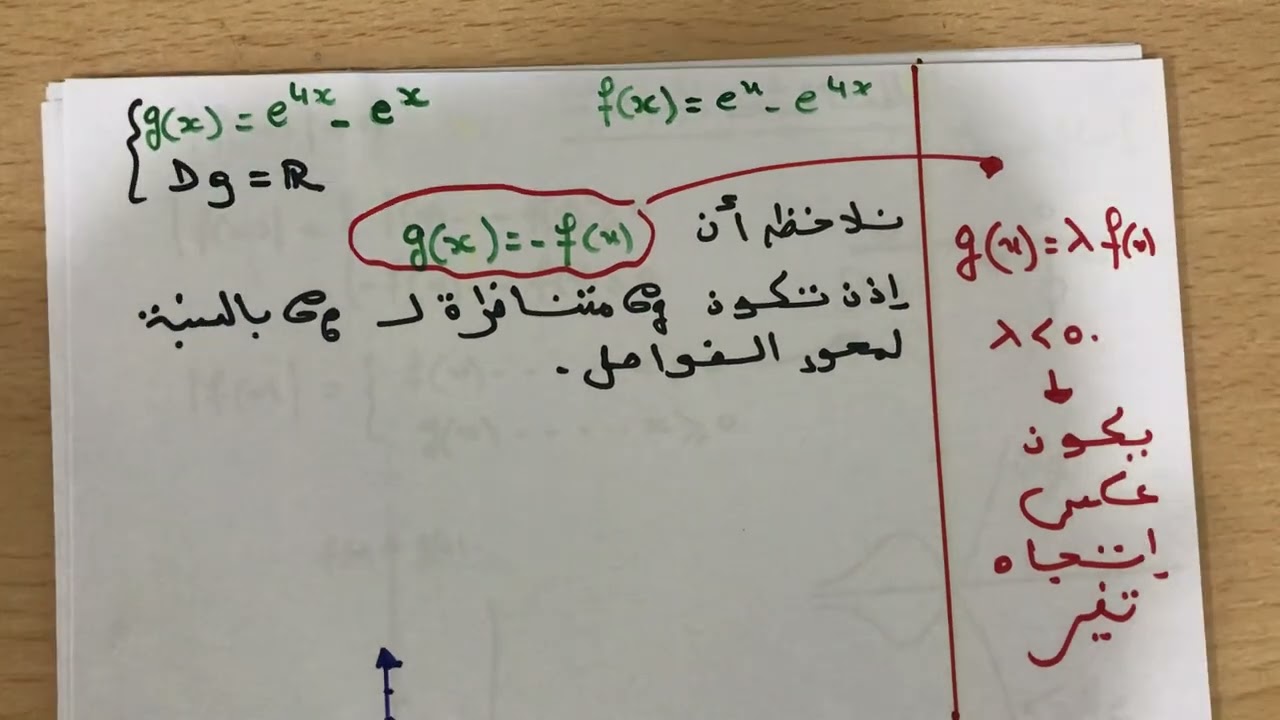 g(x) = e^{4x} - e^x
f(x) = e^x - e^{4x}
Dg = ℝ
نلاحظ أن g(x) = -f(x)
إذن تكون Cg متناظرة لـ Cf بالنسبة
لمحور الفواصل.
g(x) = λ f(x)
λ < 0.
يكون
عكس
إتجاه
تغير